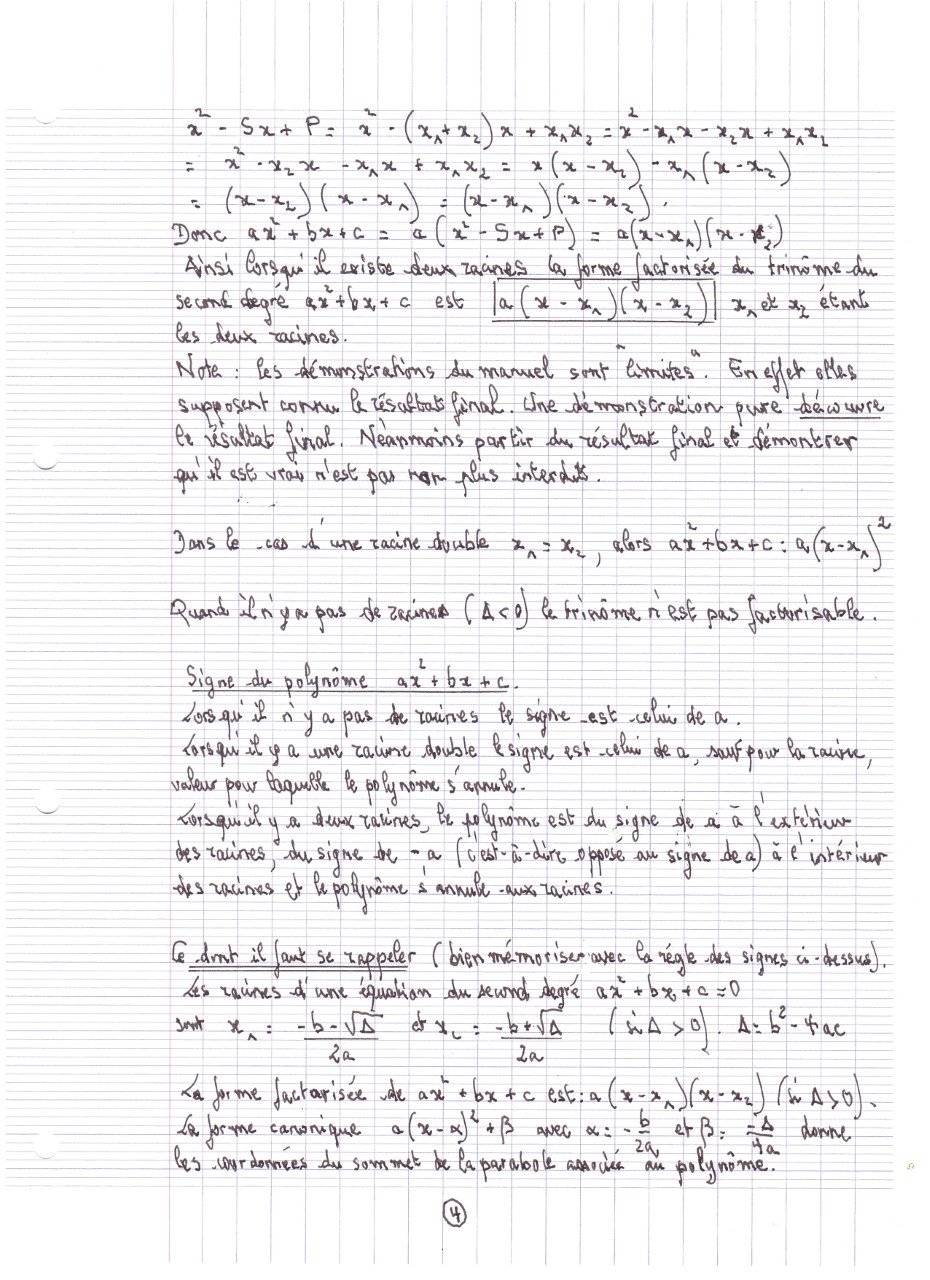 x² - Sx + P = x² - (x₁ + x₂) x + x₁x₂ = x² - x₁x - x₂x + x₁x₂
= x² - x₂x - x₁x + x₁x₂ = x (x - x₂) - x₁ (x - x₂)
= (x - x₂) (x - x₁) = (x - x₁) (x - x₂).
Donc ax² + bx + c = a (x² - Sx + P) = a(x - x₁)(x - x₂)
Ainsi lorsqu'il existe deux racines la forme factorisée du trinôme du
second degré ax² + bx + c est a (x - x₁)(x - x₂) x₁ et x₂ étant
les deux racines.
Note : les démonstrations du manuel sont "limites". En effet elles
supposent connu le résultat final. Une démonstration pure découvre
le résultat final. Néanmoins partir du résultat final et démontrer
qu'il est vrai n'est pas non plus interdit.
Dans le cas d'une racine double x₁ = x₂, alors ax² + bx + c = a(x - x₁)²
Quand il n'y a pas de racines (Δ < 0) le trinôme n'est pas factorisable.
Signe du polynôme ax² + bx + c.
Lorsqu'il n'y a pas de racines le signe est celui de a.
Lorsqu'il y a une racine double le signe est celui de a, sauf pour la racine,
valeur pour laquelle le polynôme s'annule.
Lorsqu'il y a deux racines, le polynôme est du signe de a à l'extérieur
des racines, du signe de - a (c'est-à-dire opposé au signe de a) à l'intérieur
des racines et le polynôme s'annule aux racines.
Ce dont il faut se rappeler (bien mémoriser avec la règle des signes ci-dessus).
Les racines d'une équation du second degré ax² + bx + c = 0
sont x₁ = (-b - √Δ)/2a et x₂ = (-b + √Δ)/2a (si Δ > 0). Δ = b² - 4ac
La forme factorisée de ax² + bx + c est : a (x - x₁)(x - x₂) (si Δ > 0).
La forme canonique a (x - α)² + β avec α = -b/2a et β = -Δ/4a donne
les coordonnées du sommet de la parabole associée au polynôme.
4